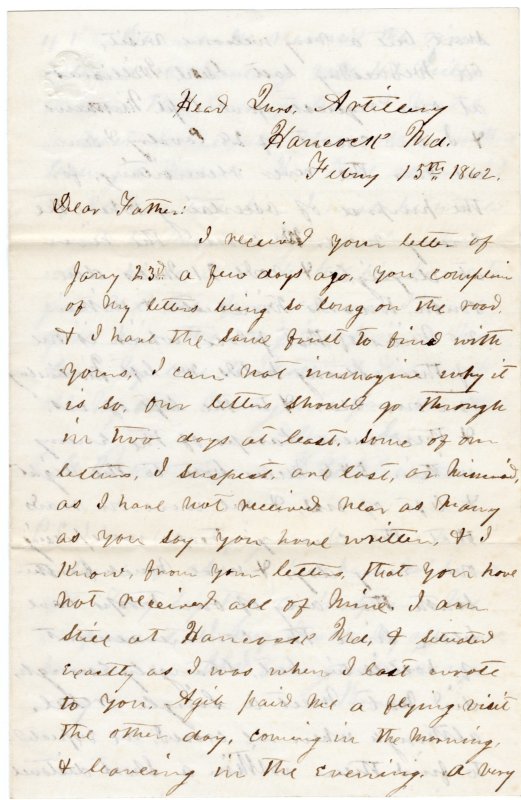 Head Qurs. Artillery
Hancock Md.
Febuy 15th 1862.
Dear Father.
I received your letter of
Jany 23d a few days ago, you complain
of my letters being so long on the road.
& I have the same fault to find with
yours, I can not immagine why it
is so, our letters should go through
in two days at least, some of our
letters, I suspect, are lost, or
as I have not received near as many
as you say you have written, & I
know, from your letters, that you have
not received all of mine. I am
still at Hancock Md, & situated
exactly as I was when I last wrote
to you. paid me a flying visit
the other day, coming in the morning,
& leaving in the evening. A very